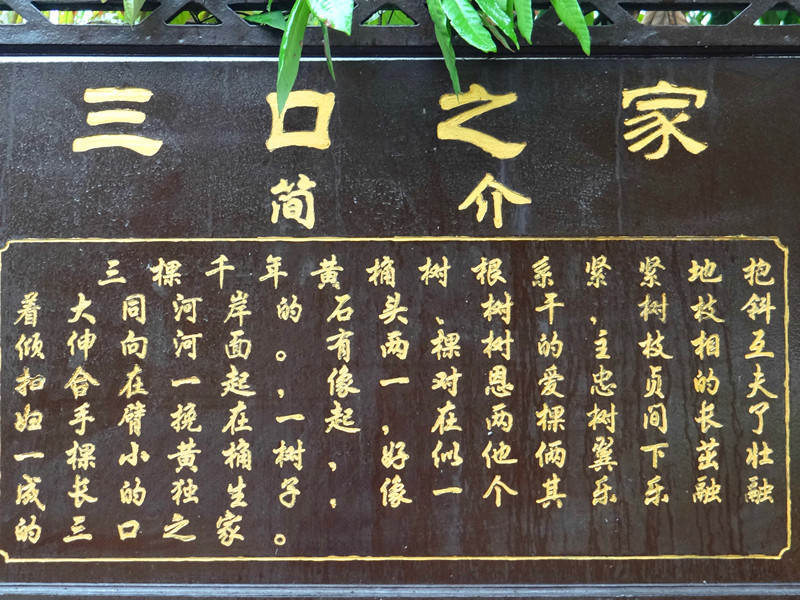 三口之家
简介
三棵千年黄桷树根系紧紧地抱
着大同河岸的石头、树干，树枝斜
倾伸向河面。有两棵树的主枝相互
扣合在一起，像一对恩爱忠贞的夫
妇手臂挽在一起，在两棵树间长了
一棵小黄桷树，好似他俩翼下茁壮
成长的独生子，像一个其乐乐融融
的三口之家。